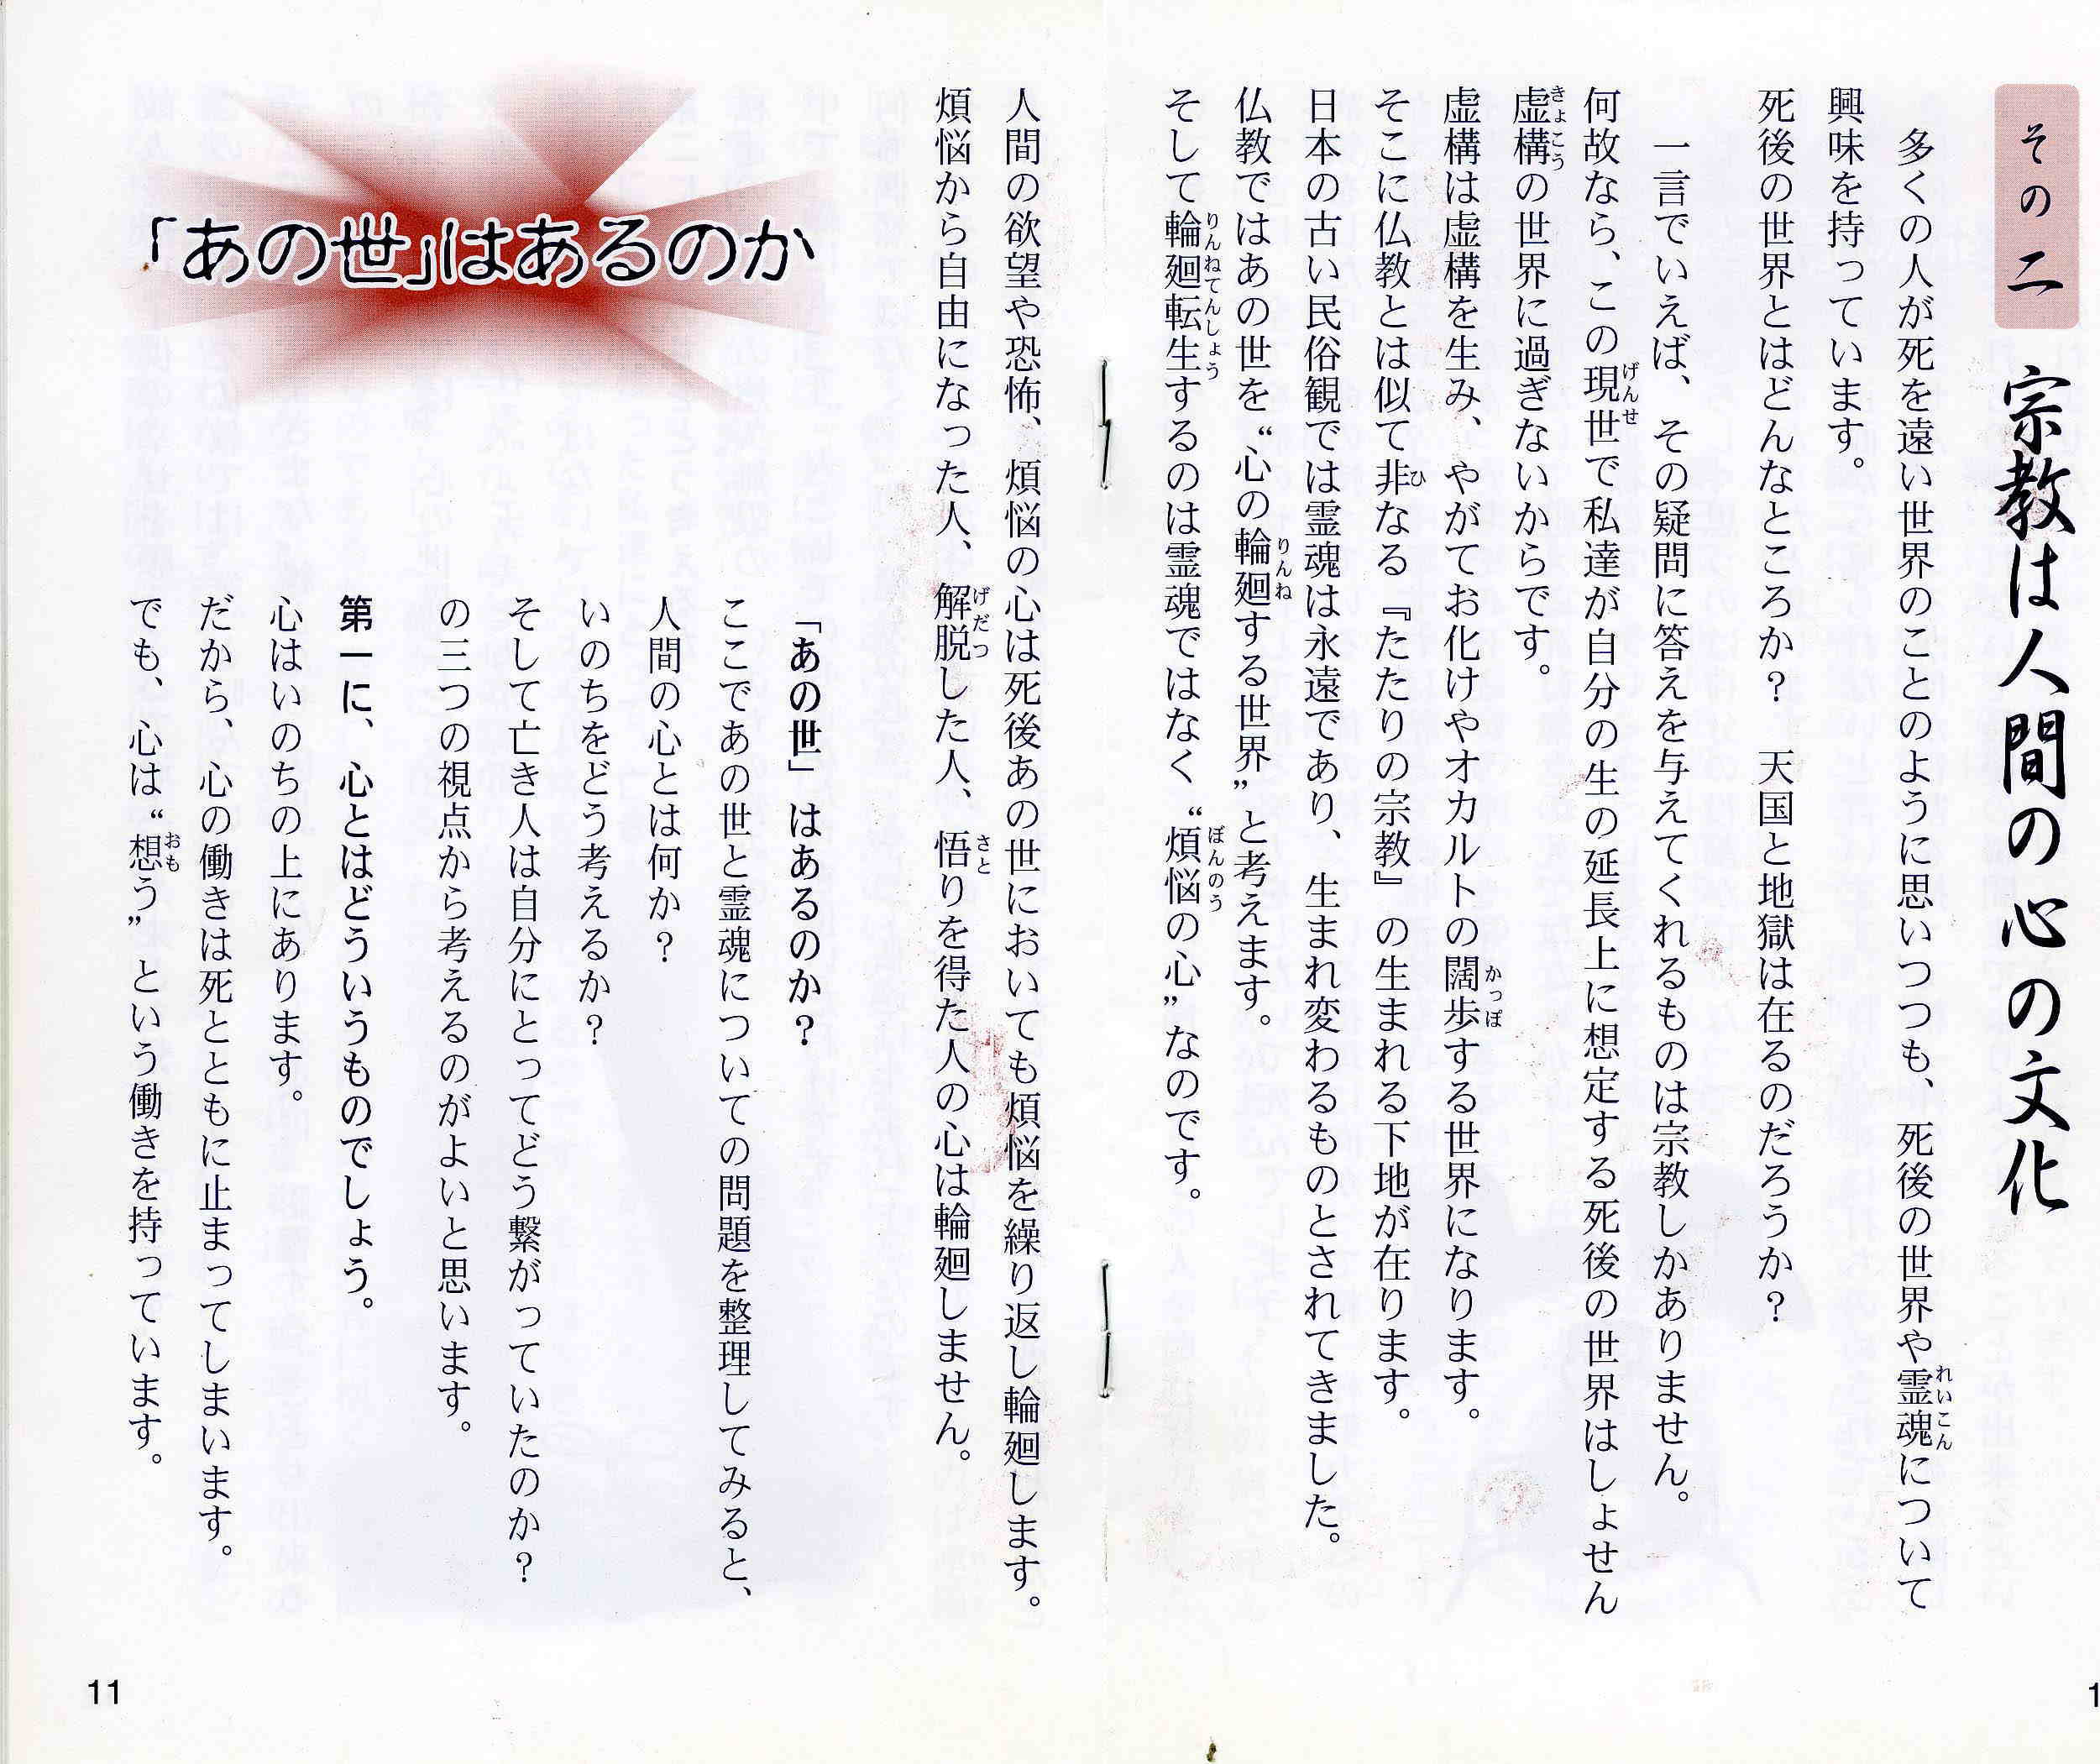 その二
宗教は人間の心の文化
多くの人が死を遠い世界のことのように思いつつも、死後の世界や霊魂(れいこん)について
興味を持っています。
死後の世界とはどんなところか？　天国と地獄は在るのだろうか？
一言でいえば、その疑問に答えを与えてくれるものは宗教しかありません。
何故なら、この現世(げんせ)で私達が自分の生の延長上に想定する死後の世界はしょせん
虚構(きょこう)の世界に過ぎないからです。
虚構は虚構を生み、やがてお化けやオカルトの闊歩(かっぽ)する世界になります。
そこに仏教とは似て非(ひ)なる『たたりの宗教』の生まれる下地が在ります。
日本の古い民俗観では霊魂は永遠であり、生まれ変わるものとされてきました。
仏教ではあの世を“心の輪廻(りんね)する世界”と考えます。
そして輪廻転生(りんねてんしょう)するのは霊魂ではなく“煩悩(ぼんのう)の心”なのです。
人間の欲望や恐怖、煩悩の心は死後あの世においても煩悩を繰り返し輪廻します。
煩悩から自由になった人、解脱(げだつ)した人、悟(さと)りを得た人の心は輪廻しません。
「あの世」はあるのか
「あの世」はあるのか？
ここであの世と霊魂についての問題を整理してみると、
人間の心とは何か？
いのちをどう考えるか？
そして亡き人は自分にとってどう繋がっていたのか？
の三つの視点から考えるのがよいと思います。
第一に、心とはどういうものでしょう。
心はいのちの上にあります。
だから、心の働きは死とともに止まってしまいます。
でも、心は“想(おも)う”という働きを持っています。
11